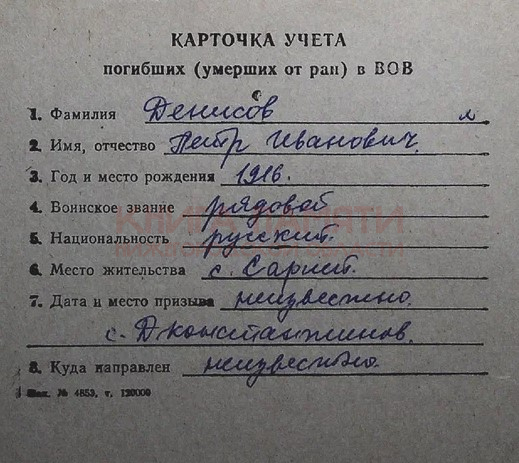 КАРТОЧКА УЧЕТА
погибших (умерших от ран) в ВОВ
1. Фамилия Денисов
2. Имя, отчество Петр Иванович.
3. Год и место рождения 1916.
4. Воинское звание рядовой
5. Национальность русский.
6. Место жительства с.
7. Дата и место призыва неизвестно.
с.
8. Куда направлен неизвестно.
Зак. № 4853, т. 120000